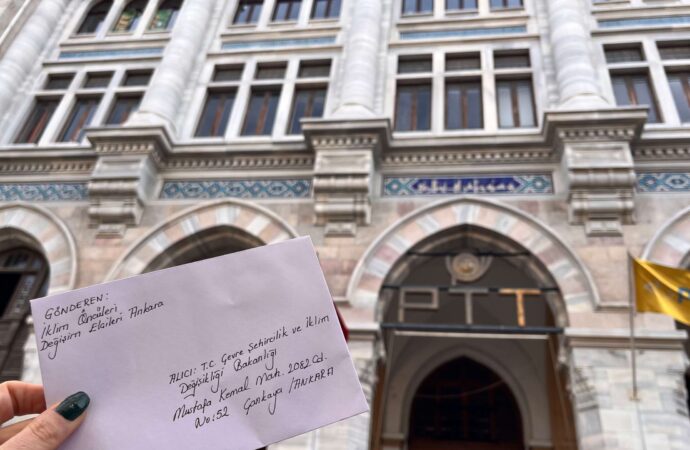 PTT
GÖNDEREN:
İklim Öncüleri
Değişim Elçileri Ankara
ALICI: T.C. Çevre Şehircilik ve İklim
Değişikliği Bakanlığı
Mustafa Kemal Mah. 2082.Cd.
No:52 Çankaya/ANKARA